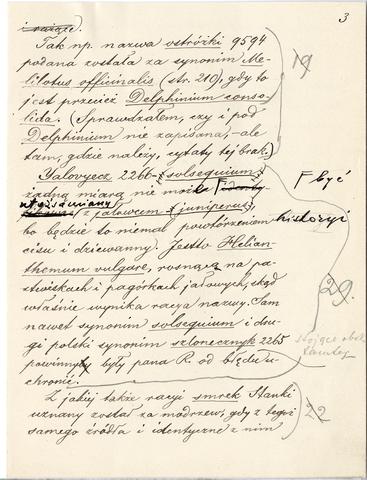 3
i rażące.
Tak np. nazwa ostróżki 9594
podana została za synonim Me-
lilotus officinalis (str. 210), gdy to
jest przecież Delphinium conso-
lida. (Sprawdzałem, czy i pod
Delphinium nie zapisana, - ale
tam, gdzie należy, cytaty tej brak.)
19
Yalovyecz 2266 (solsequium)
żadną miarą nie może być
utożsamiany z jałowcem (juniperus),
bo będzie to niemal powtórzeniem historyi
cisu i dziewanny. Jestto Helian-
themum vulgare, rosnące na pa-
stwiskach i pagórkach jałowych, skąd
właśnie wynika racya nazwy. Sam
nawet synonim solsequium i dru-
gi polski synonim szlonecznyk 2265
powinnyby były pana R. od błędu u-
chronić.
29.
stojące obok
Z jakiej także racyi smrek Stanki
uznany został za modrzew, gdy z tegoż
samego źródła i identyczne z nim
22